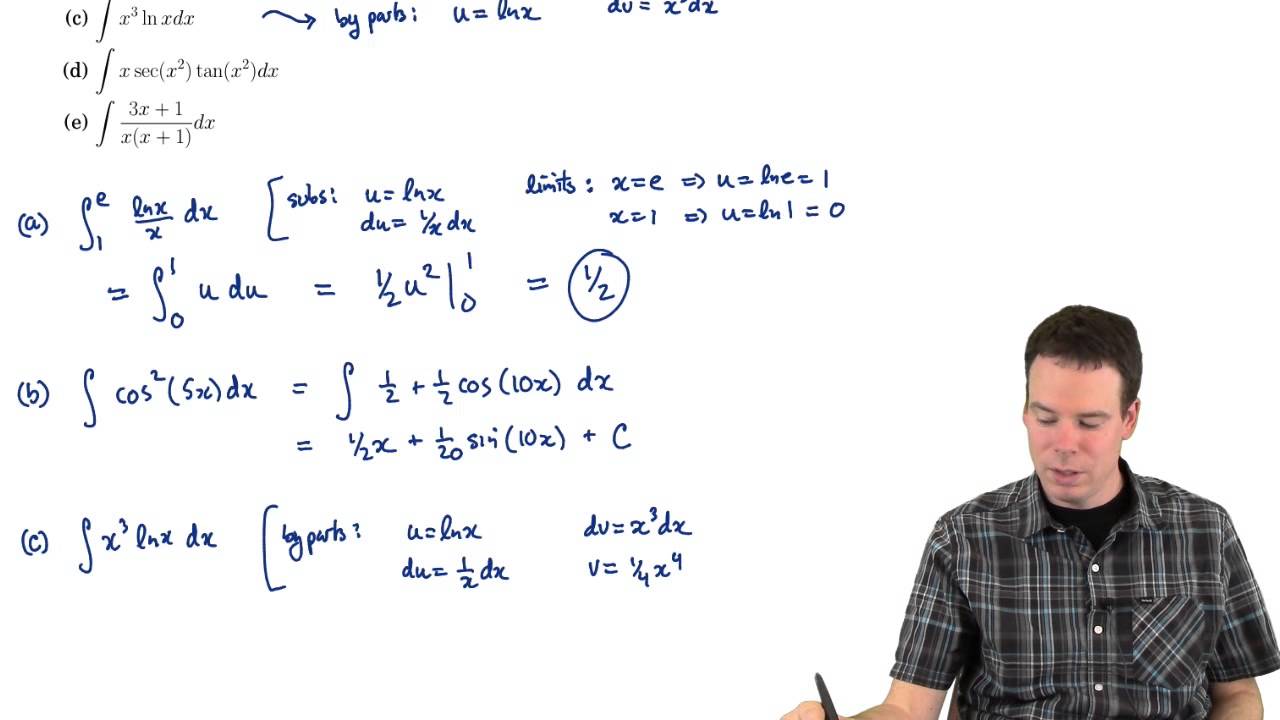 (c) ∫ x³ ln x dx → by parts: u = ln x dv = x³ dx
(d) ∫ x sec(x²) tan(x²) dx
(e) ∫ (3x + 1)/(x(x + 1)) dx
(a) ∫₁ᵉ ln x/x dx [subs: u = ln x limits: x = e ⇒ u = ln e = 1
du = 1/x dx x = 1 ⇒ u = ln 1 = 0
= ∫₀¹ u du = 1/2 u² |₀¹ = 1/2
(b) ∫ cos²(5x) dx = ∫ 1/2 + 1/2 cos(10x) dx
= 1/2 x + 1/20 sin(10x) + C
(c) ∫ x³ ln x dx [by parts: u = ln x dv = x³ dx
du = 1/x dx v = 1/4 x⁴